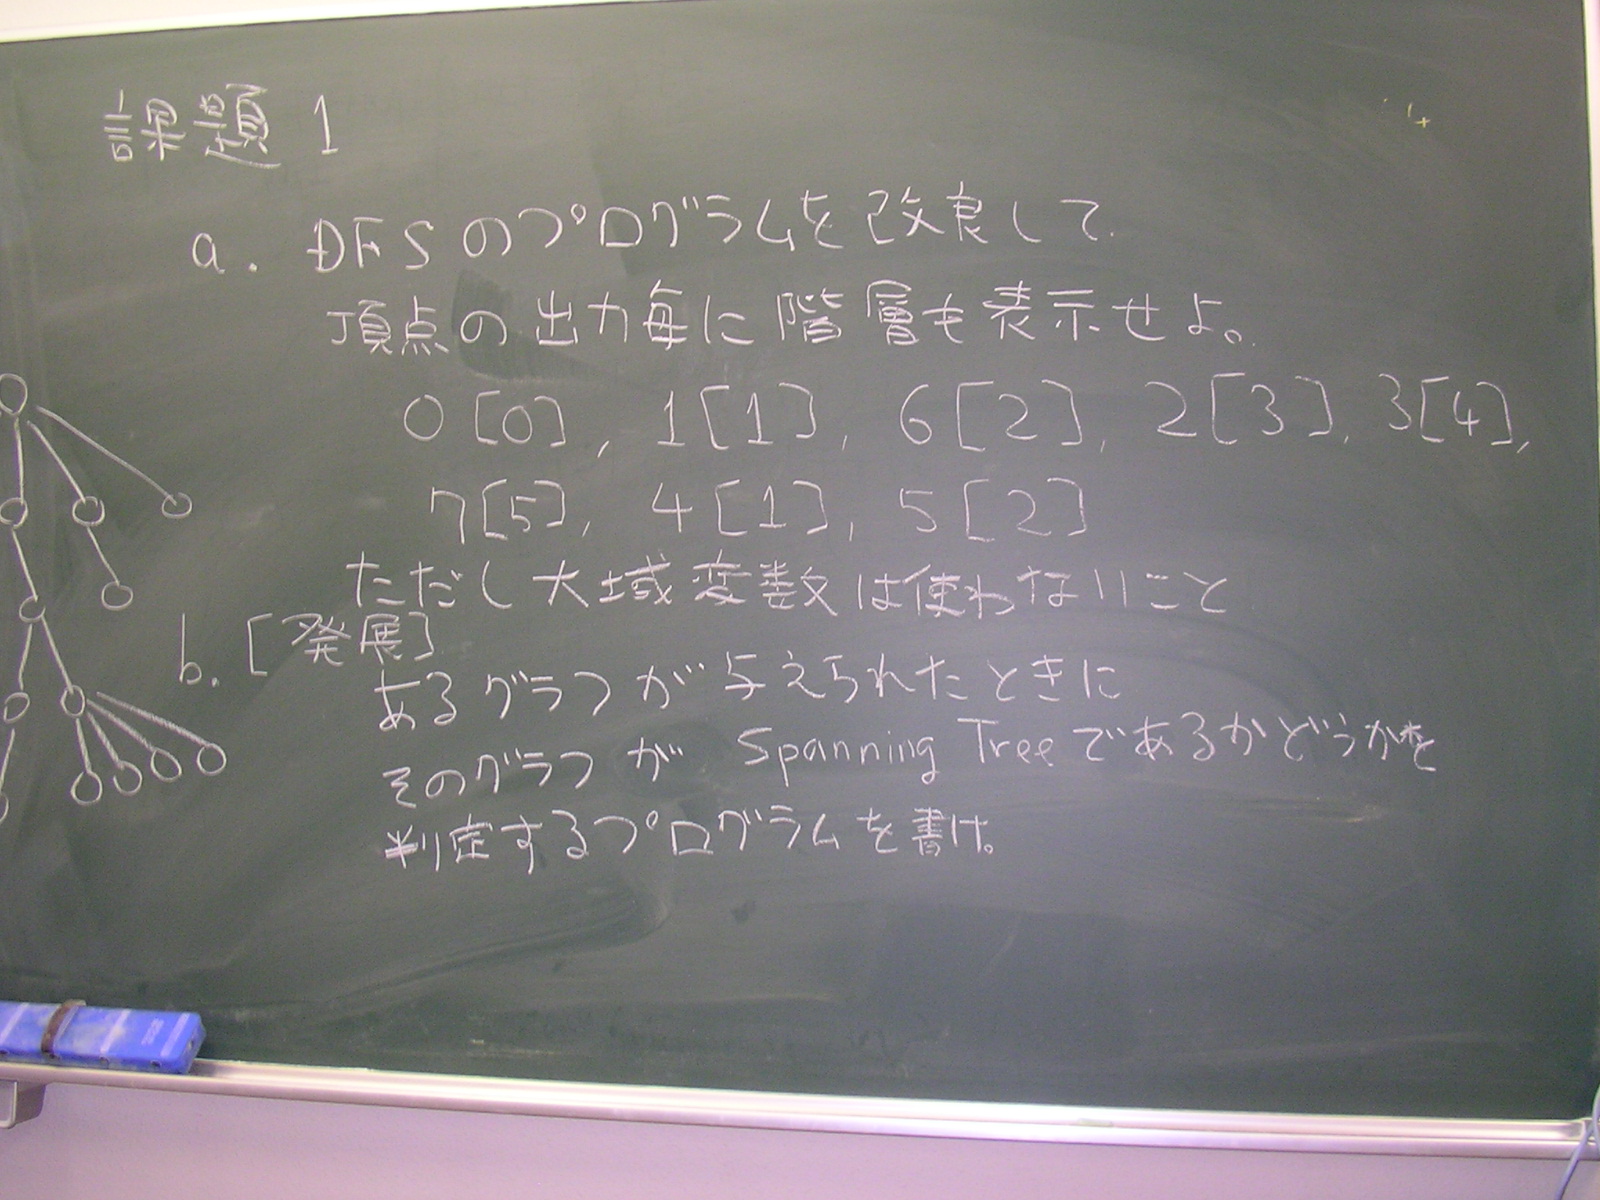 課題 1
a. DFSのプログラムを改良して
頂点の出力毎に階層も表示せよ。
0[0], 1[1], 6[2], 2[3], 3[4],
7[5], 4[1], 5[2]
ただし大域変数は使わないこと
b. [発展]
あるグラフが与えられたときに
そのグラフが Spanning Treeであるかどうかを
判定するプログラムを書け。